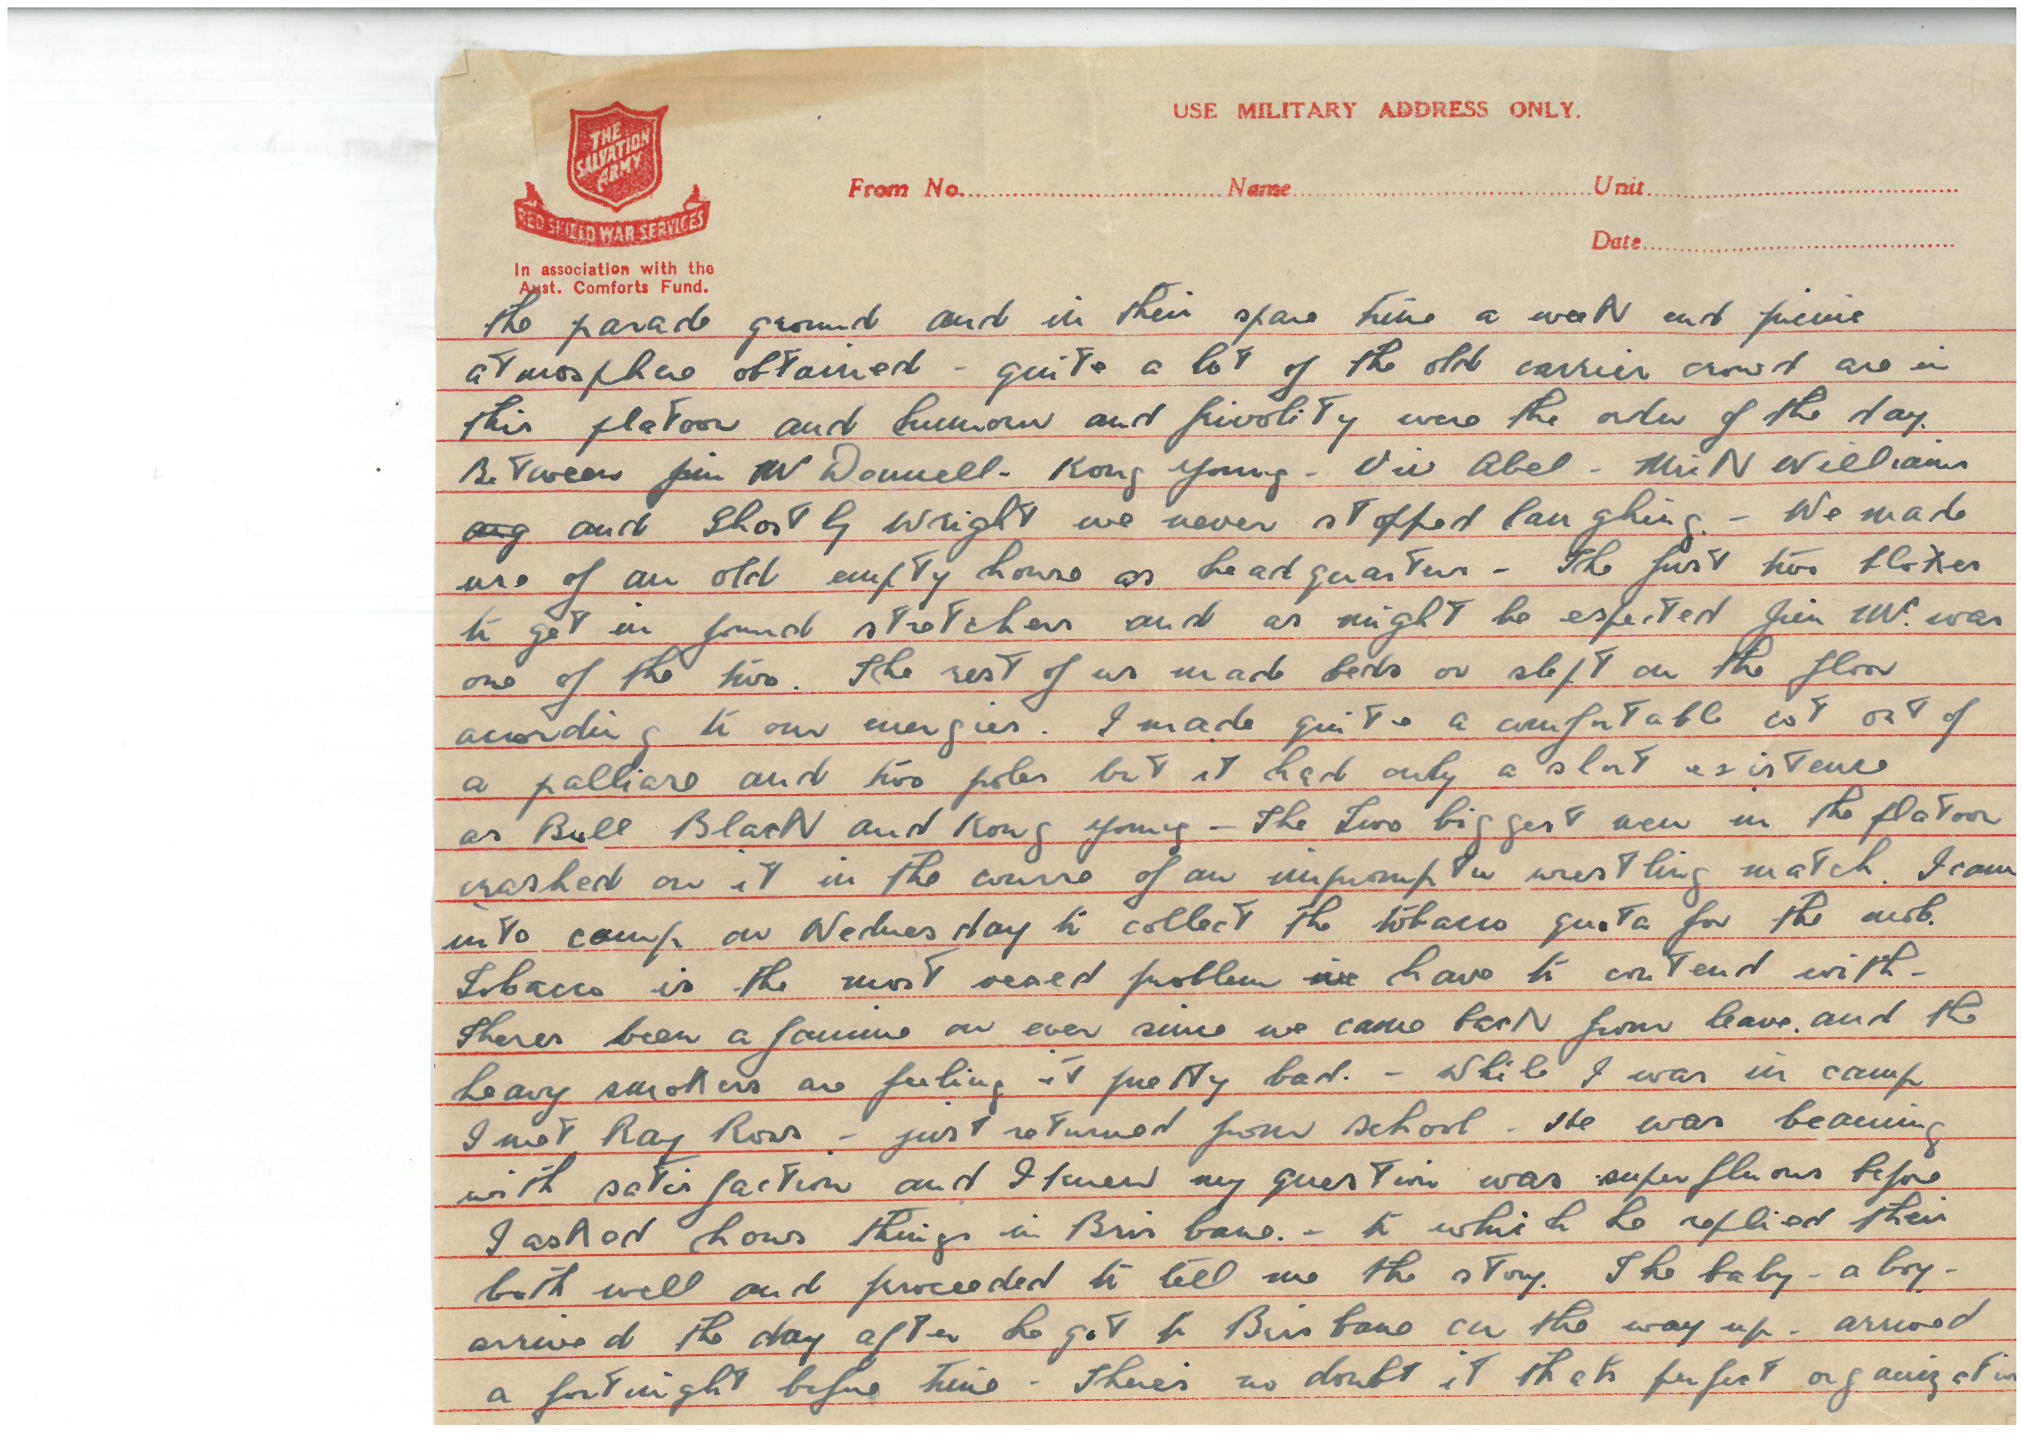 THE
SALVATION
ARMY
RED SHIELD WAR SERVICES
In association with the
Aust. Comforts Fund.
USE MILITARY ADDRESS ONLY.
From No. Name Unit
Date
the parade ground and in their spare time a week end picnic
atmosphere obtained - quite a lot of the old carrier crowd are in
this platoon and humour and frivolity were the order of the day.
Between Jim McDonnell - Kong Young - Viv Abel - Mick Williams
and Ghostly Wright we never stopped laughing - We made
use of an old empty house as headquarters - The first two blokes
to get in found stretchers and as might be expected Jim Mc. was
one of the two. The rest of us made beds or slept on the floor
according to our energies. I made quite a comfortable cot out of
a palliase and two poles but it had only a short existence
as Bull Black and Kong Young - the two biggest men in the platoon
crashed on it in the course of an impromptu wrestling match. I came
into camp on Wednesday to collect the tobacco quota for the mob.
Tobacco is the most vexed problem we have to contend with -
Theres been a famine on ever since we came back from leave. and the
heavy smokers are feeling it pretty bad. - While I was in camp
I met Ray Ross - just returned from school - He was beaming
with satisfaction and I knew my question was superfluous before
I asked hows things in Brisbane. - to which he replied their
both well and proceeded to tell me the story. The baby - a boy -
arrived the day after he got to Brisbane on the way up - arrived
a fortnight before time - There's no doubt it thats perfect organization